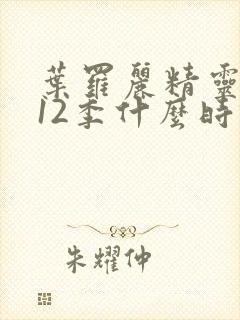 葉羅麗精靈
12季什麼時
朱耀仲